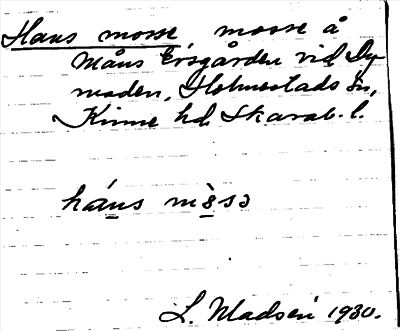 Hans mosse mosse å
Måns Ersgården vid Dy
maden, Holmestads sn,
Kinne hd. Skarab. l.
háns mòsɔ
L. Madsén 1930.